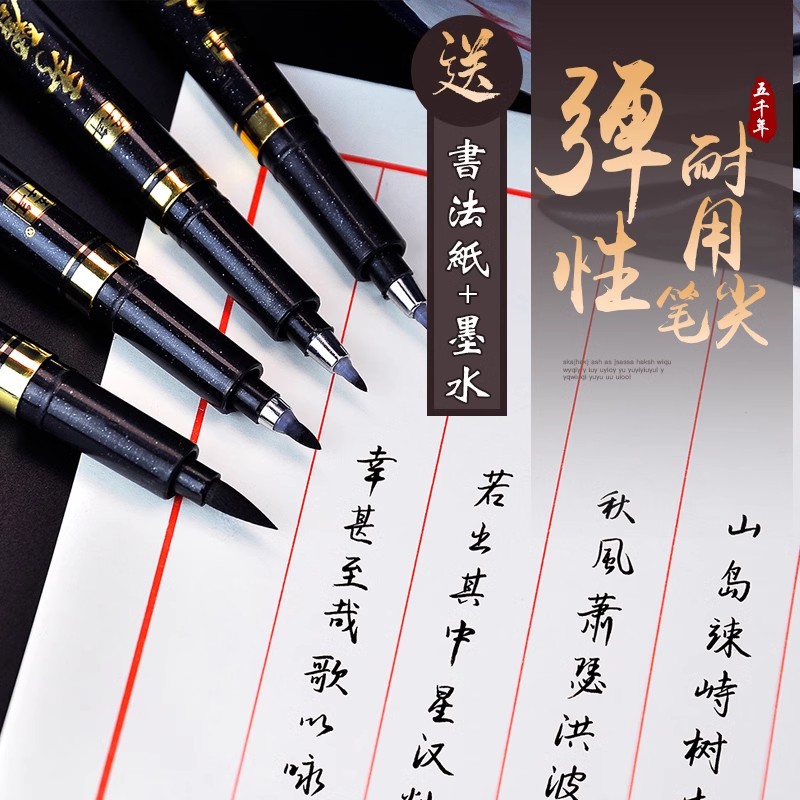 送
書法紙+墨水
彈性
耐用
笔尖
五千年
山岛竦峙树
秋風萧瑟洪波
若出其中星汉
幸甚至哉歌以咏